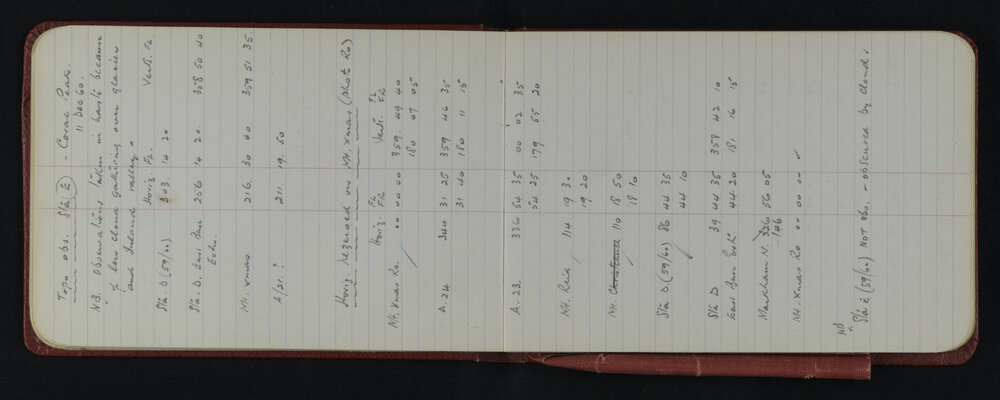 Topo obs. Stn E - Corae Peak.
11 Dec 60.
N.B. Observations taken in haste because
of low cloud gathering over glacier
and Ireland valley.
Horiz FL Verti. FL
Stn. D (59/60) 303. 14 20
Stn. D. East Base Extn. 256 14 20. 358 50 40
Mt. Xmas. 216. 30 40. 359 51 35.
A/21. ? 211 19. 50
Horiz. rezeroed on Mt. Xmas (Shot Ro)
Horiz. FL FR Verti. FL FR
Mt. Xmas Ro. 00 00 00 359 49 40
180 07 05
A. 24. 344 31 25 359 46 35
31 40 180 11 15
A. 23. 336 54 35 00 02 35
54 25 179 55 20
Mt. Reid 114 19 30
19. 20
Mt. 110 18 50
18 10
Stn D (59/60) 86 44 35
44 10
Stn D 39 44 35 358 42 10
East Base Extn 44 20 181 16 15
Markham N. 326 56 05
146
Mt. Xmas Ro 00 00 00 ✓
NB
Stn E (59/60) NOT obs. - obscured by cloud.